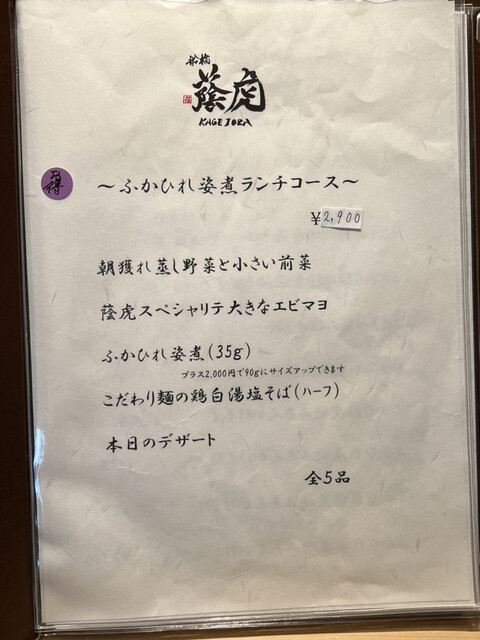 船橋
蔭虎
KAGETORA
得
～ふかひれ姿煮ランチコース～
¥2,900
朝獲れ蒸し野菜と小さい前菜
蔭虎スペシャリテ大きなエビマヨ
ふかひれ姿煮(35g)
プラス2,000円で90gにサイズアップできます
こだわり麺の鶏白湯塩そば(ハーフ)
本日のデザート
全5品